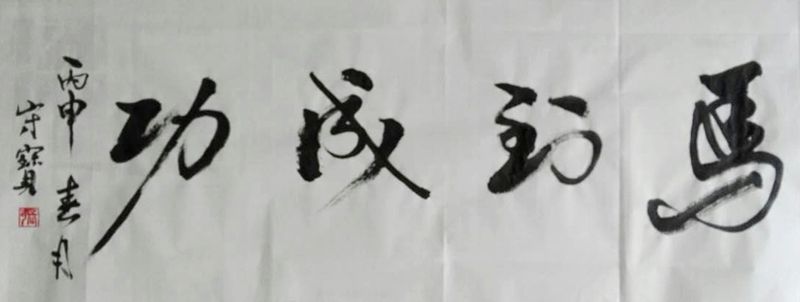 馬到成功
丙申春月
守寳